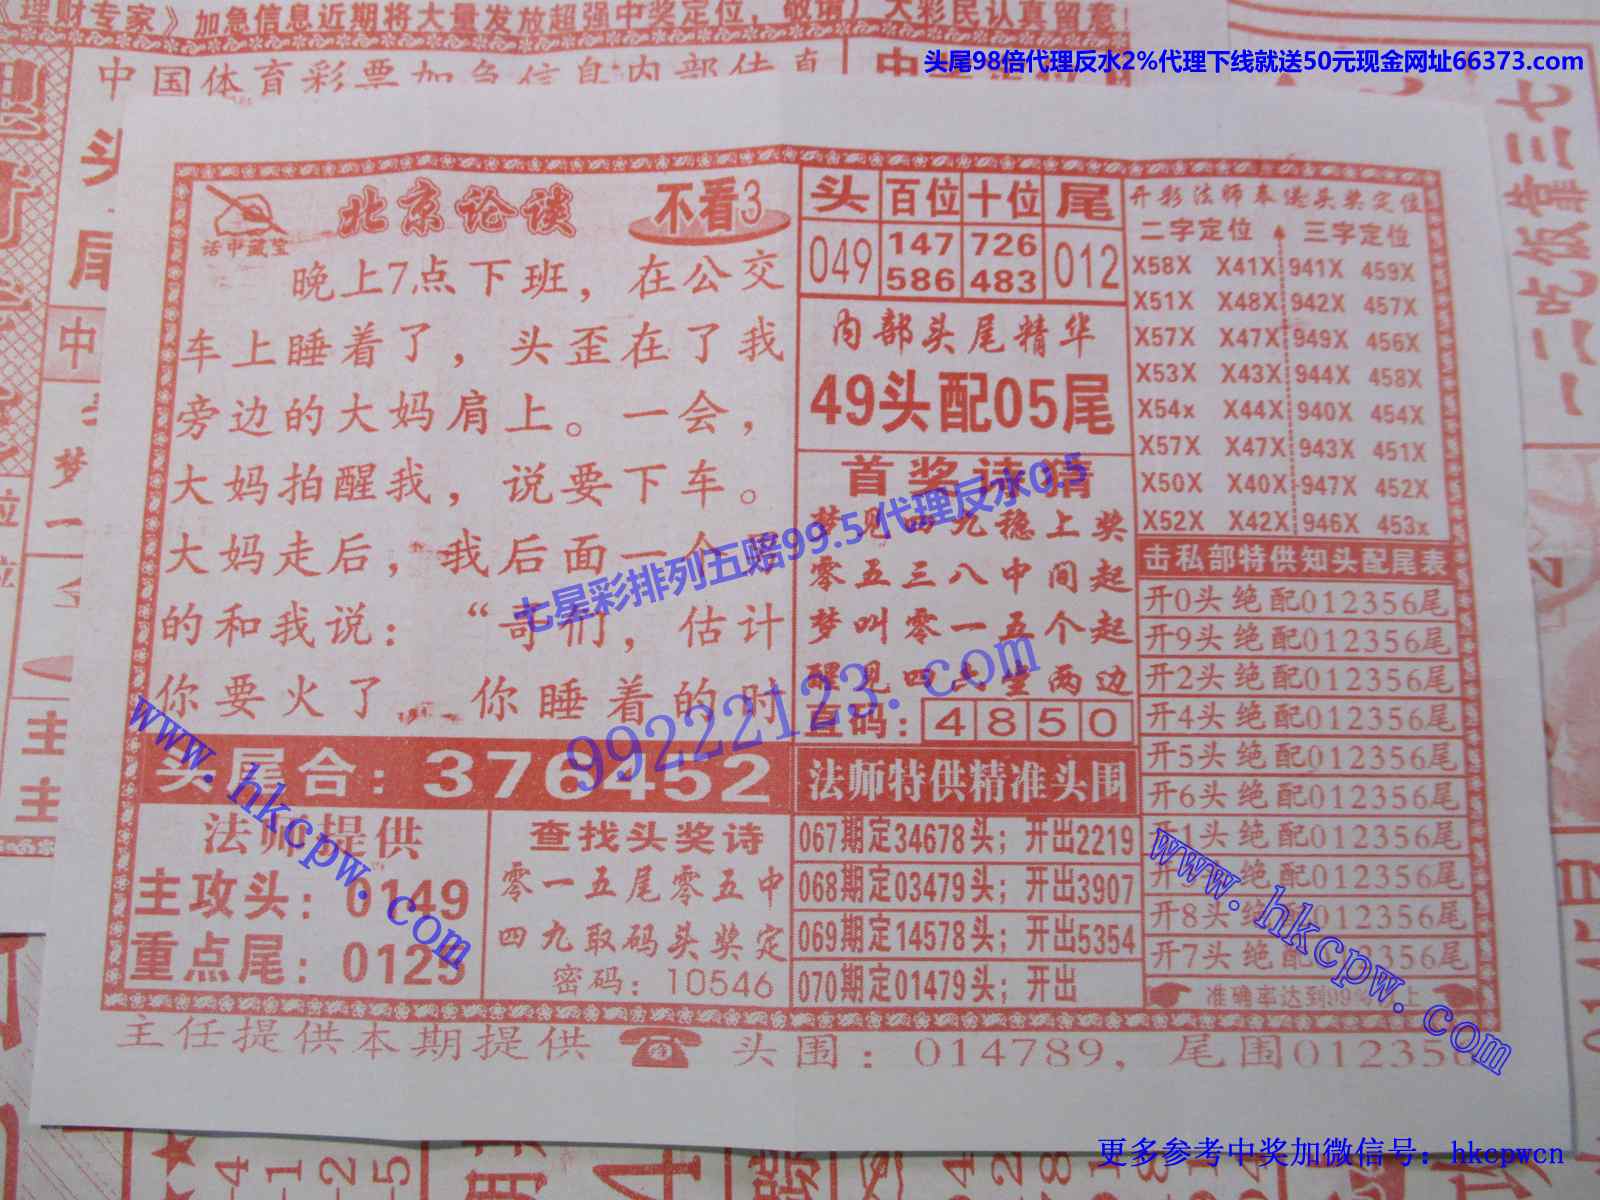 理财专家》加急信息近期将大量发放超强中奖定位,敬请)大彩民认真留意!
中国体育彩票加急信息内部传真
头尾98倍代理反水2%代理下线就送50元现金网址66373.com
一二吃饭靠三七
北京论谈
不看3
话中藏宝
晚上7点下班，在公交
车上睡着了，头歪在了我
旁边的大妈肩上。一会，
大妈拍醒我，说要下车。
大妈走后，我后面一个男
的和我说：“哥们，估计
你要火了，你睡着的时
头尾合：376452
法师提供
主攻头：0149
重点尾：0125
查找头奖诗
零一五尾零五中
四九取码头奖定
密码：10546
头 百位 十位 尾
049 147 726 012
586 483
内部头尾精华
49头配05尾
首奖诗猜
梦见四九稳上奖
零五三八中间起
梦叫零一五个起
醒见四六坐两边
直码：4850
法师特供精准头围
067期定34678头；开出2219
068期定03479头；开出3907
069期定14578头；开出5354
070期定01479头；开出
开彩法师奉送头奖定位
二字定位 三字定位
X58X X41X 941X 459X
X51X X48X 942X 457X
X57X X47X 949X 456X
X53X X43X 944X 458X
X54x X44X 940X 454X
X57X X47X 943X 451X
X50X X40X 947X 452X
X52X X42X 946X 453x
击私部特供知头配尾表
开0头绝配012356尾
开9头绝配012356尾
开2头绝配012356尾
开4头绝配012356尾
开5头绝配012356尾
开6头绝配012356尾
开1头绝配012356尾
开3头绝配012356尾
开8头绝配012356尾
开7头绝配012356尾
准确率达到99%以上
主任提供本期提供 头围：014789，尾围012356
七星彩排列五赔99.5 代理反水0.5
99222123.com
www.hkcpw.com
www.hkcpw.com
更多参考中奖加微信号：hkcpwcn